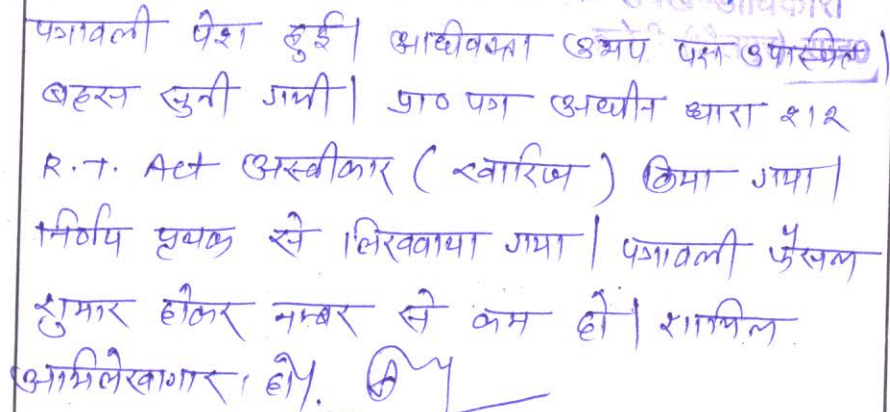 पत्रावली पेश हुई। अधीवक्ता उभय पक्ष उपस्थित।
बहस सुनी गयी। प्रा० पत्र अधीन धारा २१२
R.T. Act अस्वीकार (खारिज) किया गया।
निर्णय पृथक से लिखवाया गया। पत्रावली फैसल
शुमार होकर नम्बर से कम हो। शामिल
अभिलेखागार हो।